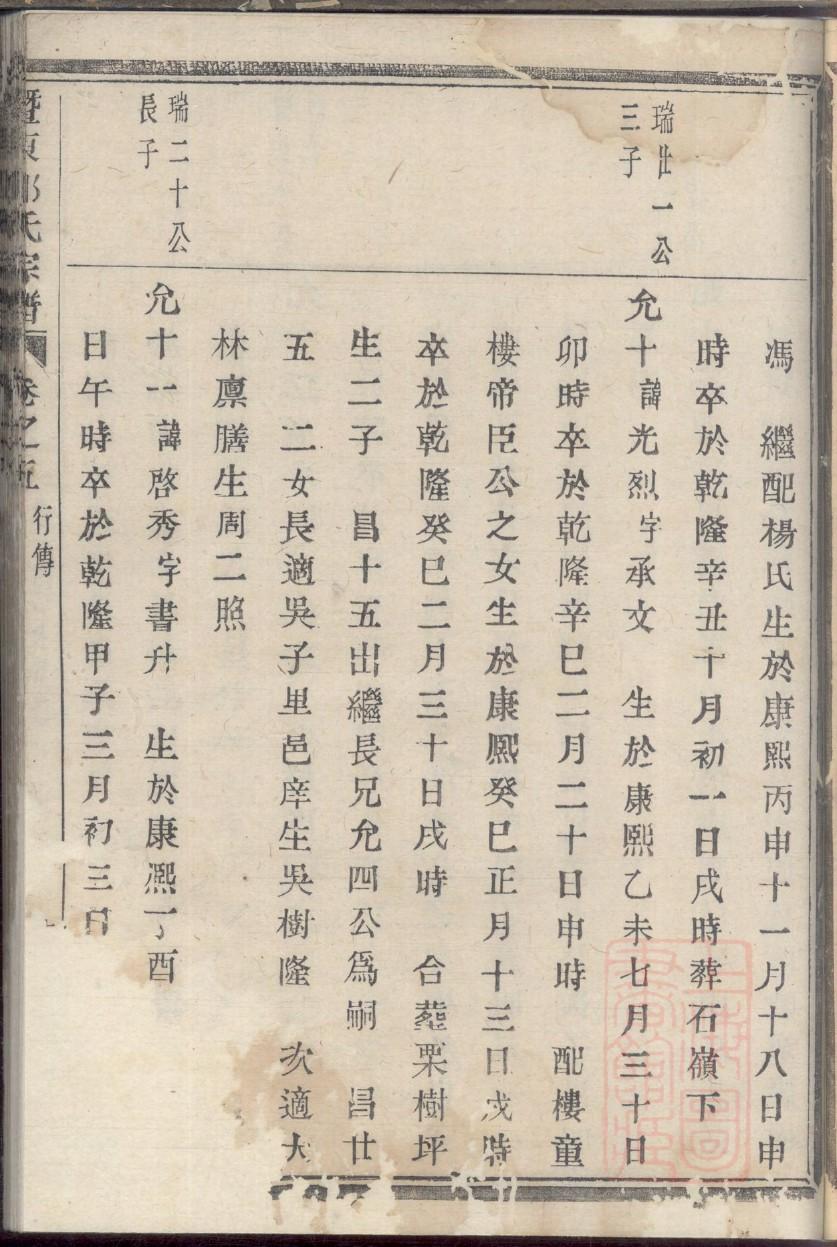 馮　繼配楊氏生於康熙丙申十一月十八日申
時卒於乾隆辛丑十月初一日戌時葬石嶺下
瑞廿一公
三子
允十諱光烈字承文　生於康熙乙未七月三十日
卯時卒於乾隆辛巳二月二十日申時　配樓童
樓帝臣公之女生於康熙癸巳正月十三日戌時
卒於乾隆癸巳二月三十日戌時　合葬栗樹坪
生二子　昌十五出繼長兄允四公爲嗣　昌廿
五　二女長適吳子里邑庠生吳樹隆　次適大
林廩膳生周二照
瑞二十公
長子
允十一諱啓秀字書升　生於康熙丁酉
日午時卒於乾隆甲子三月初三日
暨東 氏宗譜　卷之五　行傳